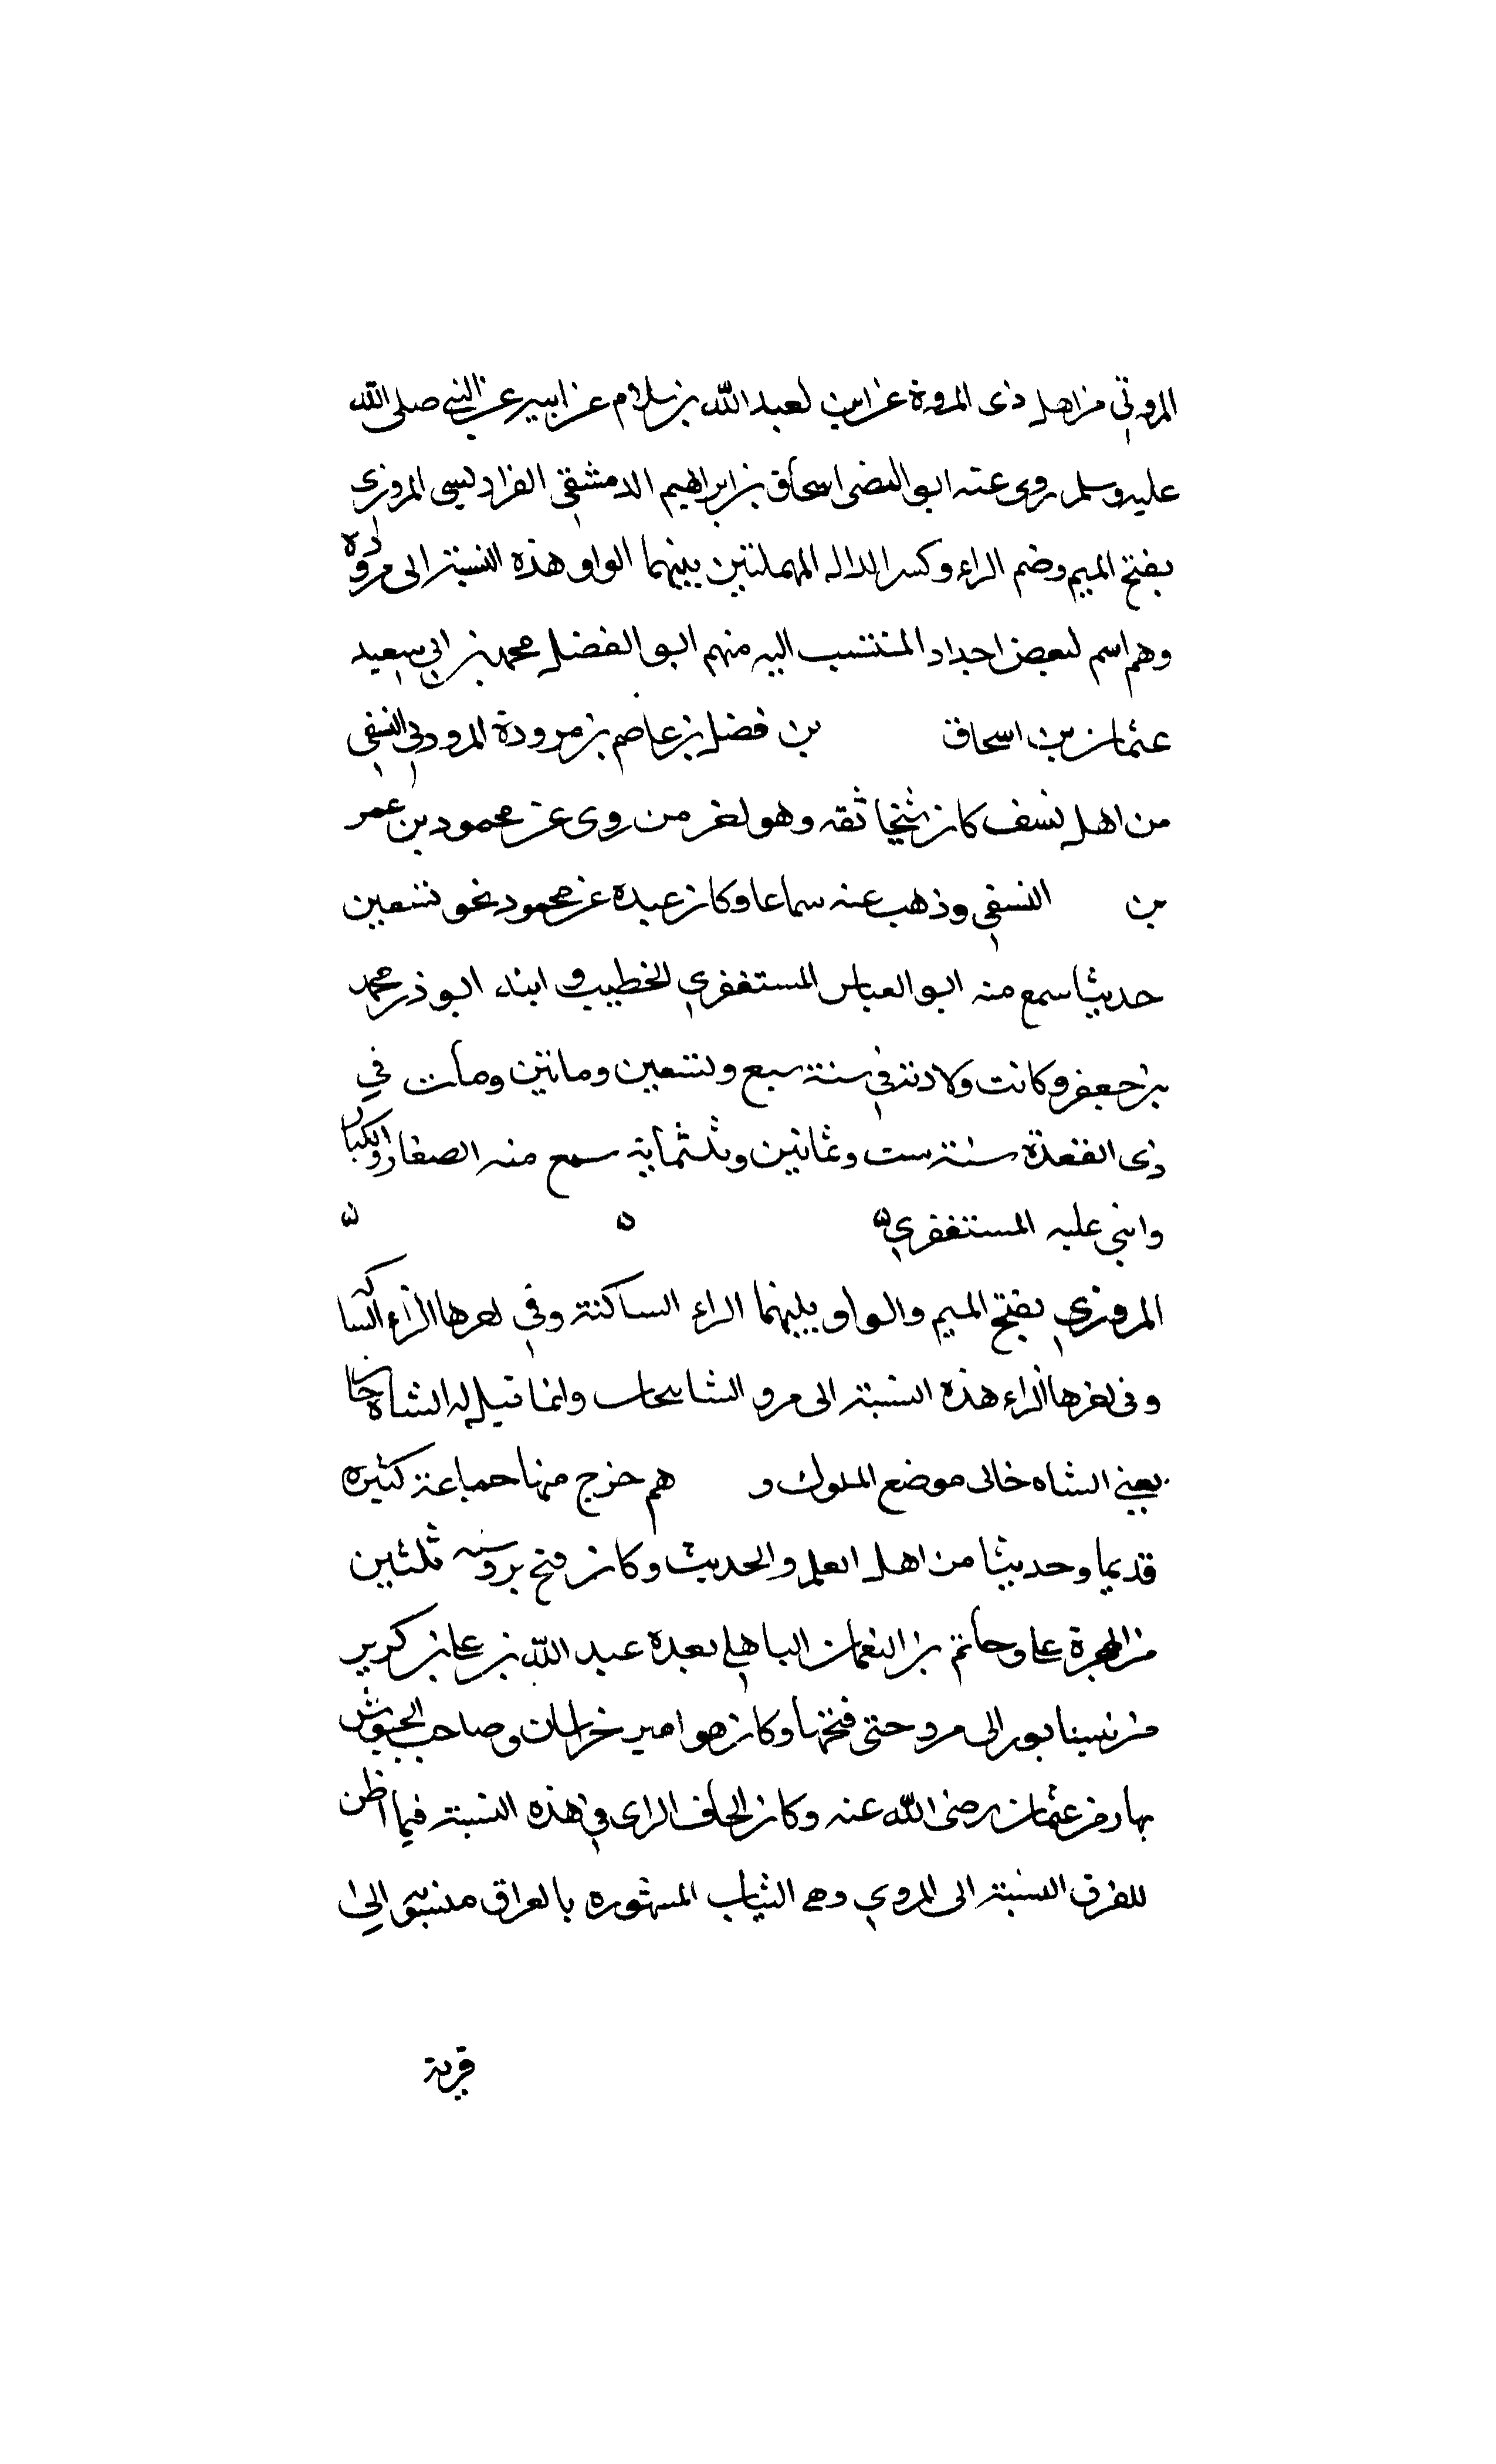 المروتي من اهل ذى المروة عن ابن لعبد الله بن سلام عن ابيه عن النبي صلى الله
عليه وسلم روى عنه ابو النضر اسحاق بن ابراهيم الدمشقي الفراديسي المرودى
بفتح الميم وضم الراء وكسر الدال المهملتين بينهما الواو هذه النسبة الى مرودة
وهم اسم لبعض اجداد المنتسب اليه منهم ابو الفضل محمد بن ابي سعيد
عثمان بن اسحاق بن فضل بن عاصم بن مرودة المرودي النسفي
من اهل نسف كان شيخا ثقه وهو اخر من روى عن محمود بن عمر
بن النسفي وذهب عنه سماعا وكان عبده عن محمود نحو تسعين
حديثا سمع منه ابو العباس المستغفري الخطيب و ابنه ابو ذر محمد
بن جعفر وكانت ولادته في سنة سبع وتسعين وماتين ومات في
ذى القعدة سنة ست وثمانين وثلثماية سمع منه الصغار والكبار
واثنى عليه المستغفري ه ه ه
المروزي بفتح الميم والواو بينهما الراء الساكنة وفي اخرها الزاء السا
وفى اخرها الزاء هذه النسبة الى مرو الشاهجان وانما قيل له الشاه جان
يعني الشاه خالى موضع الملوك و هم خرج منها جماعة كثيره
قديما وحديثا من اهل العلم والحديث وكان فتح مرو سنه ثلثين
من الهجرة على وحاتم بن النعمان الباهلي بعده عبد الله بن عامر بن كريز
من نيسابور الى مرو حتى فتحها وكان هو امير خراسان وصاحب الجيوش
بها من عثمان رضى الله عنه وكان الحاف الزاى في هذه النسبة فيما اظن
للفرق النسبة الى المروي وهى الثياب المشهوره بالعراق منسوبة الى
قرية